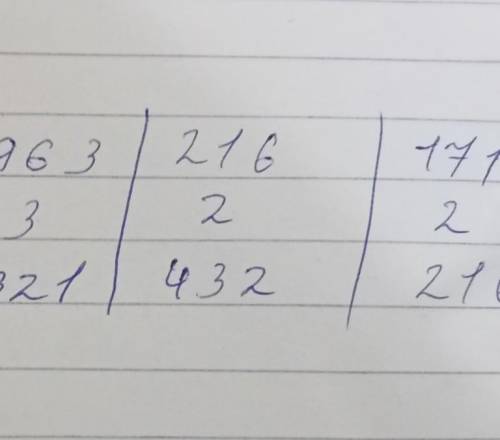 963 216 171
3 2 2
321 432 216